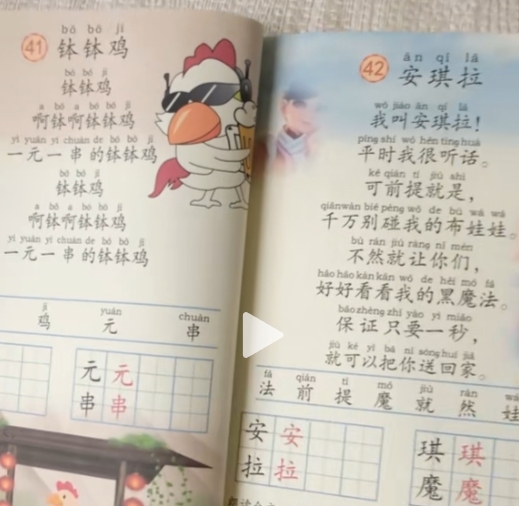 41
bō bō jī
钵钵鸡
bō bō jī
钵钵鸡
a bō a bō bō jī
啊钵啊钵钵鸡
yī yuán yí chuàn de bō bō jī
一元一串的钵钵鸡
bō bō jī
钵钵鸡
a bō a bō bō jī
啊钵啊钵钵鸡
yī yuán yí chuàn de bō bō jī
一元一串的钵钵鸡
jī yuán chuàn
鸡 元 串
元 元
串 串
42
ān qí lā
安琪拉
wǒ jiào ān qí lā
我叫安琪拉!
píng shí wǒ hěn tīng huà
平时我很听话。
kě qián tí jiù shì
可前提就是,
qiān wàn bié pèng wǒ de bù wá wa
千万别碰我的布娃娃。
bù rán jiù ràng nǐ men
不然就让你们,
hǎo hǎo kàn kàn wǒ de hēi mó fǎ
好好看看我的黑魔法。
bǎo zhèng zhǐ yào yì miǎo
保证只要一秒,
jiù kě yǐ bǎ nǐ sòng huí jiā
就可以把你送回家。
fǎ qián tí mó jiù rán wá
法 前 提 魔 就 然 娃
安 安 琪 琪
拉 拉 魔 魔